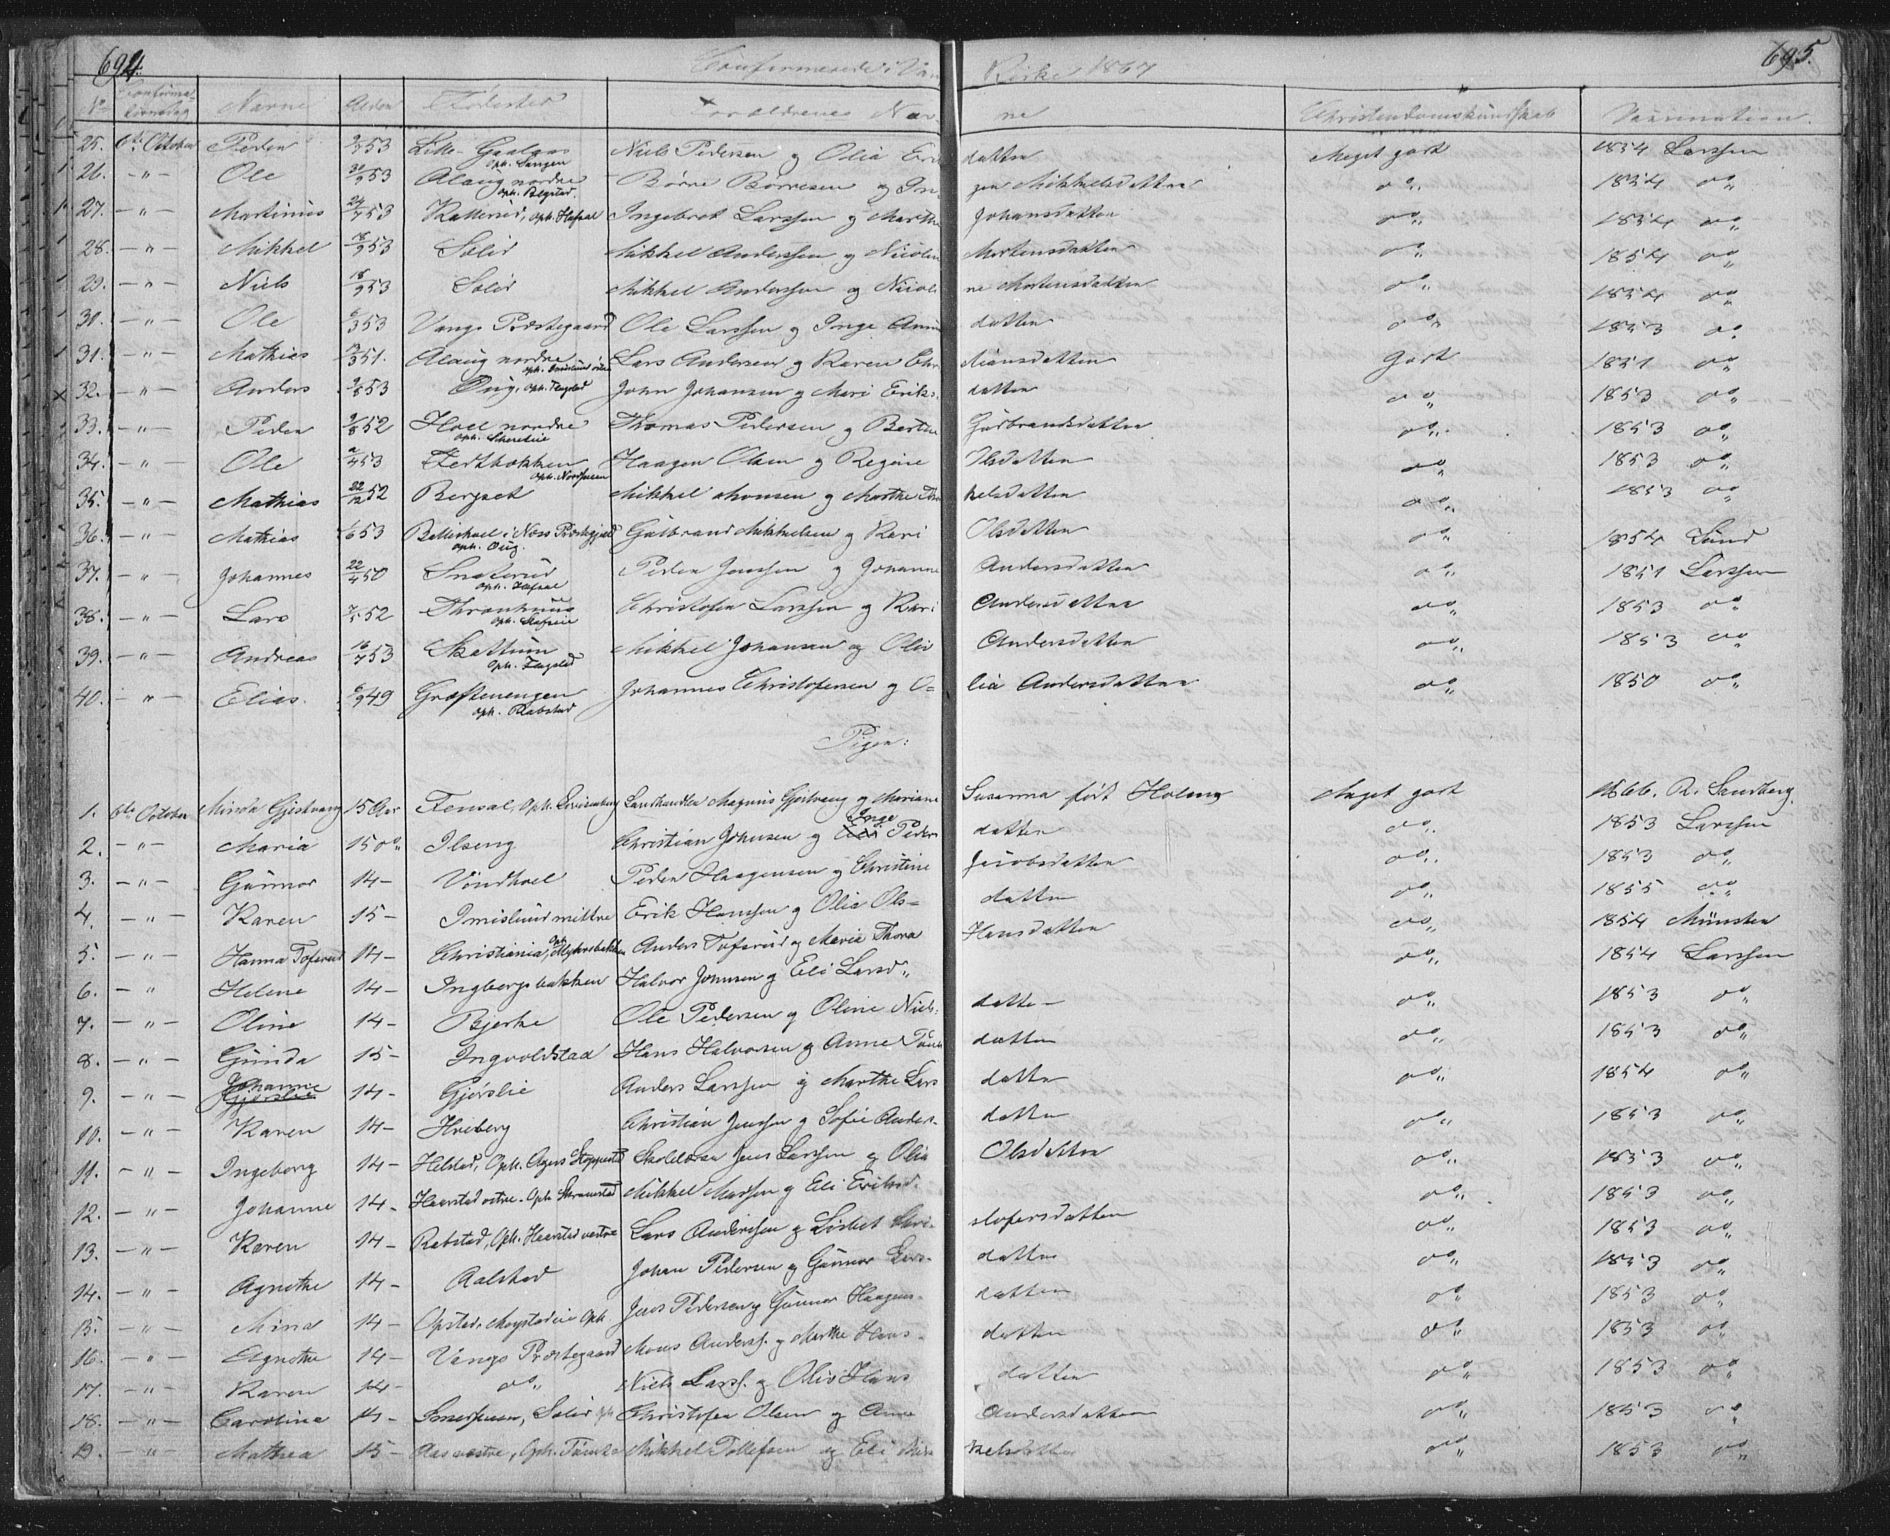 694.
Confirmerede i Vang Kirke 1867
695.
No Confirmationsdag Navne Alder Fødested Forældrenes Navne Christendomskundskab Vaccination.
25. 6te October Peder 53 Lille- Gaalaas Niels Pedersen og Olia Eriksdatter Meget godt 1854 Larssen
26. - " - Ole 53 Alaug nordre Børre Børresen og Inger Mikkelsdatter do 1854 do
27. - " - Martinius 24/4 53 Katterud, Oph. Hafsal Ingebret Larssen og Marthe Johansdatter do 1854 do
28. - " - Mikkel 18/9 53 Solid Mikkel Anderssen og Nicoline Mortensdatter do 1854 do
29. - " - Niels 18/9 53 Solid Mikkel Anderssen og Nicoline Mortensdatter do 1854 do
30. - " - Ole 53 Vangs Præstegaard Ole Larssen og Inge datter do 1853 do
31. - " - Mathias 51. Alaug nordre Lars Andersen og Karen Christiansdatter Godt 1851 do
32. - " - Anders 53 Oug, Oph. Flagstad John Johansen og Mari Eriksdatter do 1853 do
33. - " - Peder 52 Hoel nordre Thomas Pedersen og Gudbrandsdatter do 1853 do
34. - " - Ole 53 Haagen Olsen og Regine Olsdatter do 1853 do
35. - " - Mathias 22/12 52 Bergset Mikkel Monsen og Marthe kelsdatter do 1853 do
36. - " - Mathias 53 i Næs Præstegjeld Oph. Oug. Gulbrand Mikkelsen og Kari Olsdatter do 1854 Lund
37. - " - Johannes 22/4 50 Snaterud Peder Jenssen og Johanne Andersdatter do 1851 Larssen
38. - " - Lars 52 Christofer Larssen og Kari Andersdatter do 1853 do
39. - " - Andreas 53 Skattum Oph. Flagstad Mikkel Johansen og Oliv Andersdatter do 1853 do
40. - " - Elias. 49 Grøftenengen Oph. Rabstad Johannes Christofersen og O=lia Andersdatter do 1850 do
Piger:
1. 6te October Minda Gjestvang 15 Aar Fensal, Oph. Lovisenberg Landhandler Magnus Gjestvang og Mariane Susanna født Holeng Meget godt 1866. R. Sandberg.
2. - " - Maria 15 do Ilseng Christian Johnsen og Inge Pedersdatter do 1853 Larssen
3. - " - Gunnor 14 - Vondhoel Peder Haagensen og Christine Jacobsdatter do 1853 do
4. - " - Karen 15 - Imislund mittre Erik Hanssen og Olia Ols-datter do 1855 do
5. - " - Hanna Toferud 14 - Christiania, Oph. Anders Toferud og Maria Thora Hansdatter do 1854 Münster
6. - " Helene 14 - Ingbergsbakken Halvor Johnsen og Eli Larsd" do 1854 Larssen
7. - " - Oline 14 - Bjerke Ole Pedersen og Oline Niels-datter do 1853 do
8. - " - Gunda 15 - Ingvoldstad Hans Halvorsen og Anne datter do 1853 do
9. - " - Johanne Gjørslie 14 - Gjørslie Anders Larssen og Marthe Larsdatter do 1854 do
10. - " - Karen 14 - Hviberg Christian Jenssen og Sofie Anders-datter do 1853 do
11. - " - Ingeborg 14 - Helstad, Oph. Skolelærer Jens Larssen og Olia Olsdatter do 1853 do
12. - " - Johanne 14 - Haarstad vstre. Oph. Skramstad Mikkel og Eli Eriksd. do 1853 do
13. - " - Karen 14 - Rabstad, Oph. Haarstad vestre Lars Anderssen og Lisbet Christofersdatter do 1853 do
14. - " - Agnethe 14 - Aalstad Johan Pedersen og Gunnor Lars-datter do 1853 do
15. - " - Mina 14 - Opstad, Oph. Jens Pedersen og Gunnor Haagens-datter do 1853 do
16. - " - Agnethe 14 - Vangs Præstegaard Mons Anderss. og Marthe Hans-datter do 1853 do
17. - " - Karen 14 - do Niels Larss. og Oliv Hansdatter do 1853 do
18. - " - Carolina 14 - Solid Christofer Olsen og Anne Andersdatter do 1853 do
19. - " - Mathea 15 - Aas vestre, Oph. Mikkel Tollefsen og Eli Mikkelsdatter do 1853 do